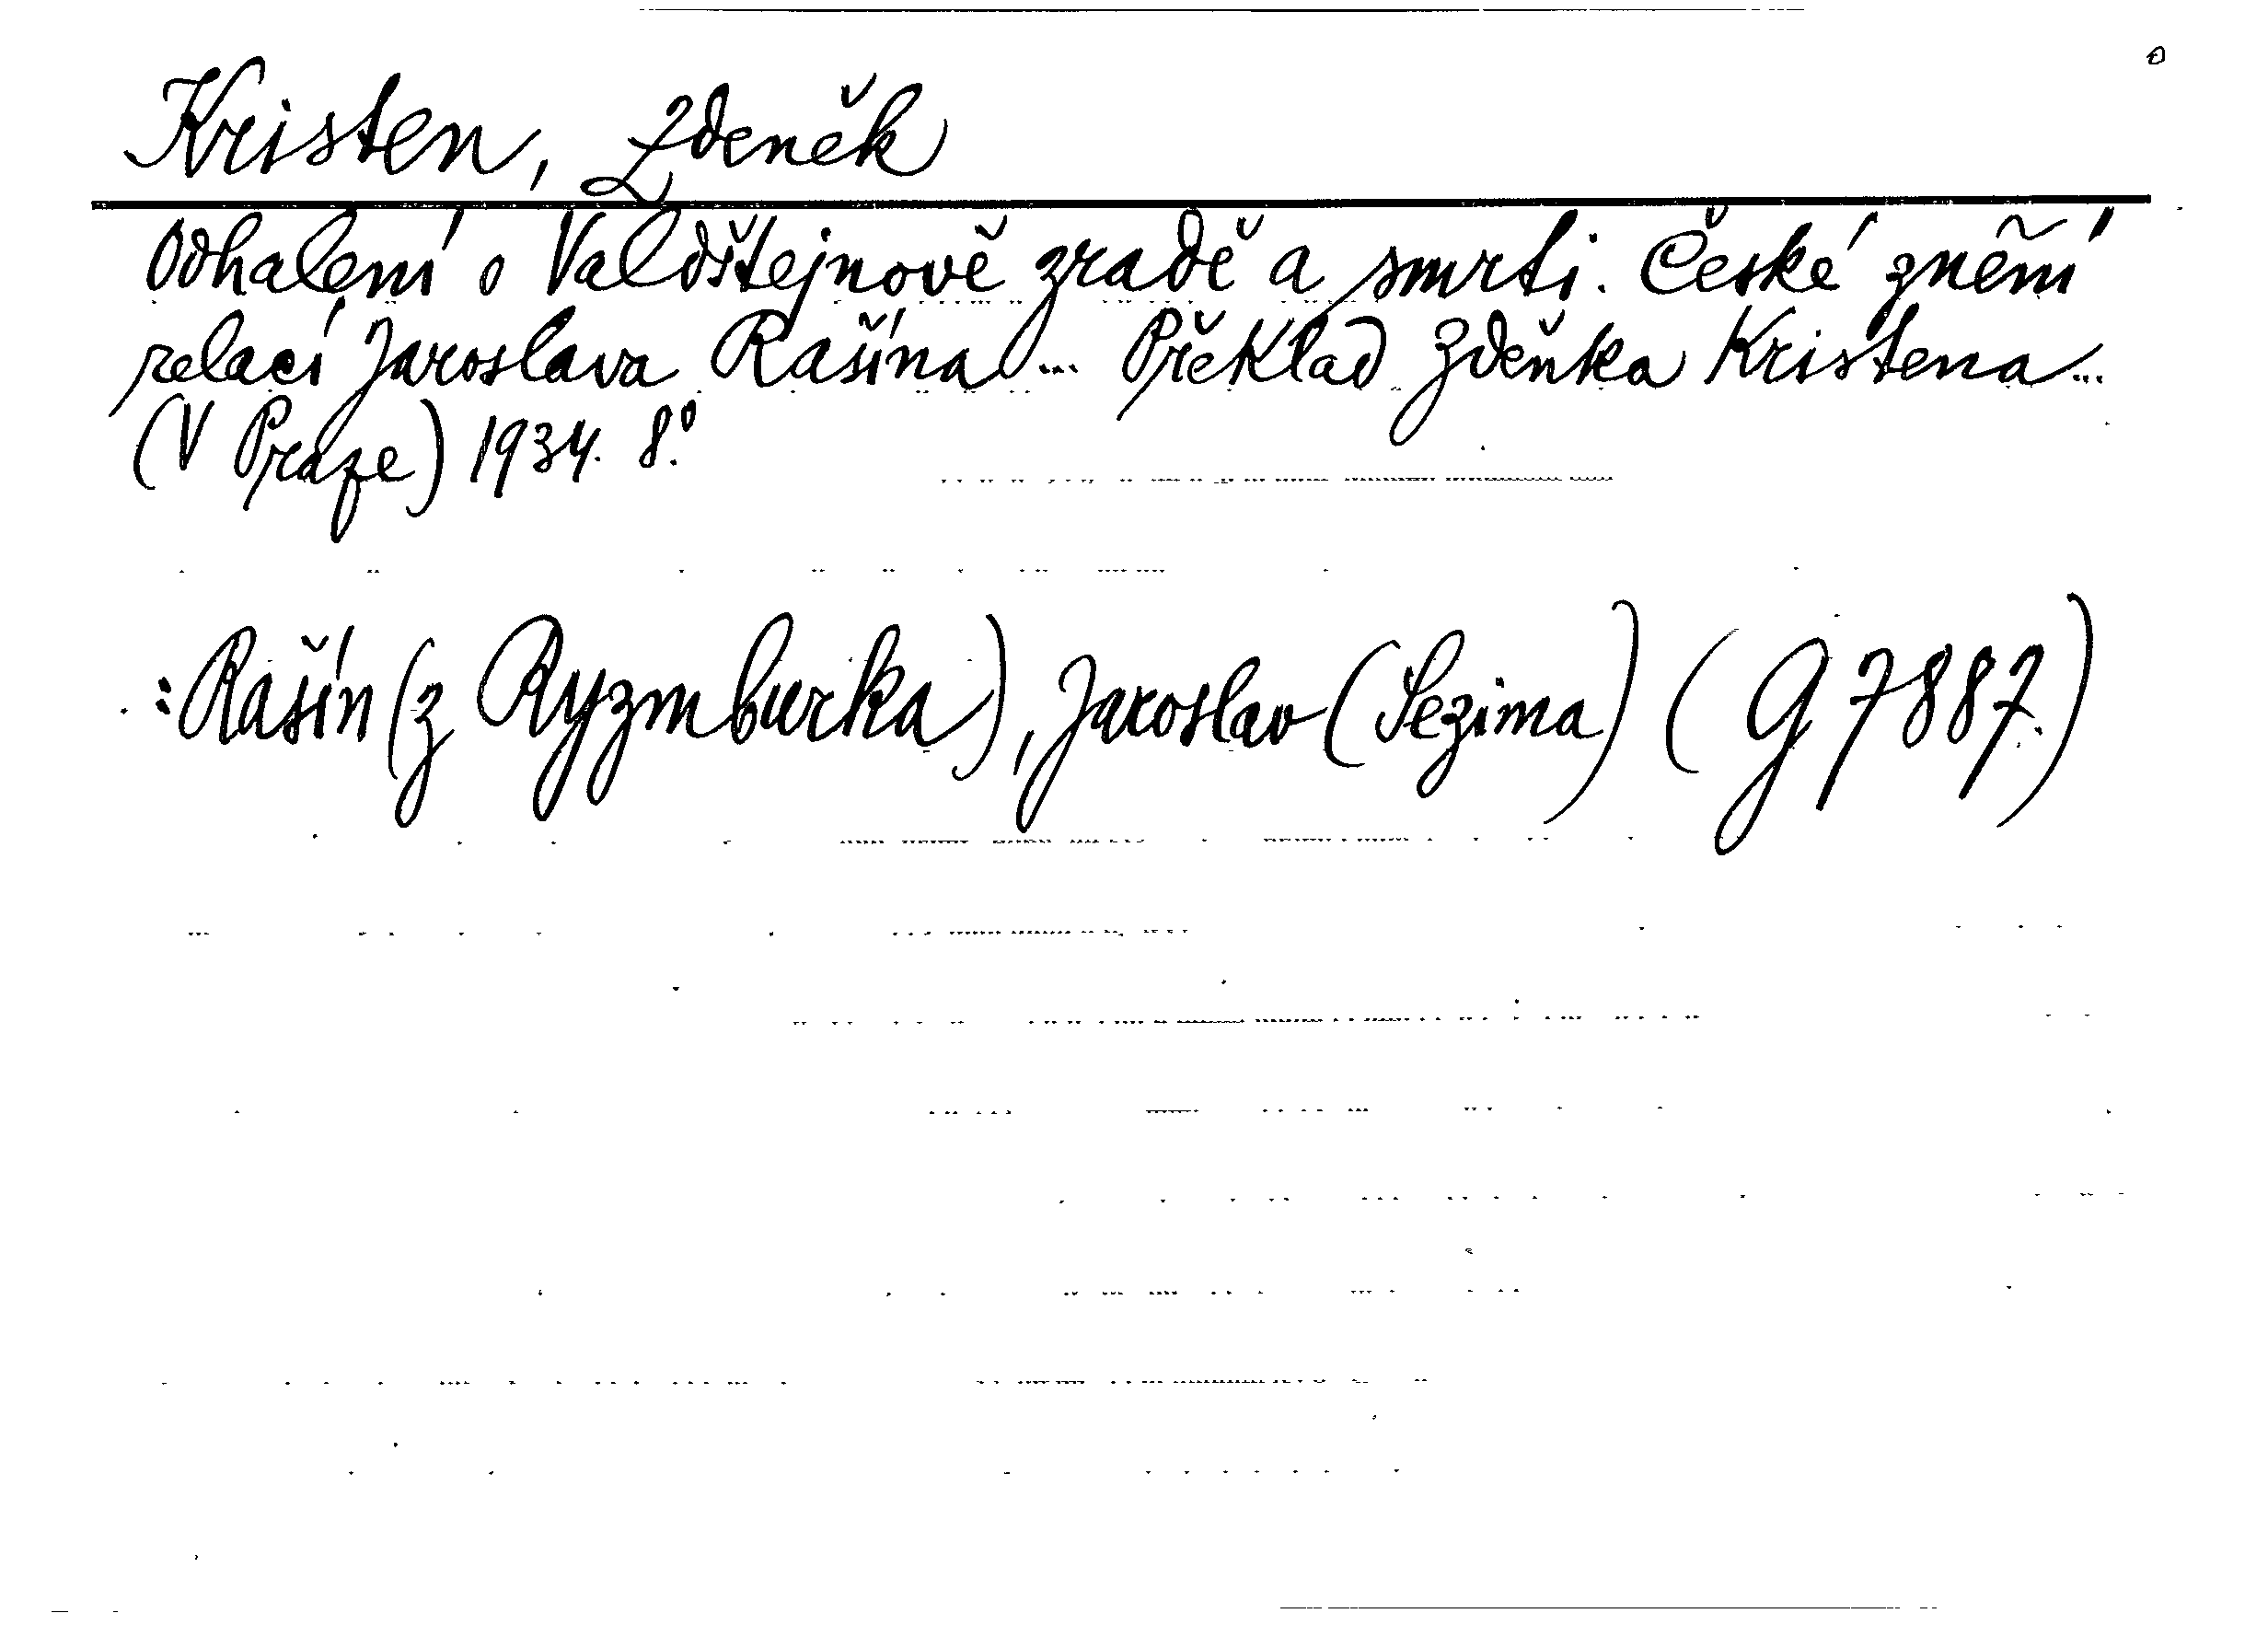 Kristen, Zdeněk
Odhalení o Valdštejnově zradě a smrti. České znění
relací Jaroslava Rašína... Překlad Zdeňka Kristena...
(V Praze) 1934. 8.°
:Rašín (z Ryzmburka), Jaroslav (Sezima) (G 7887.)